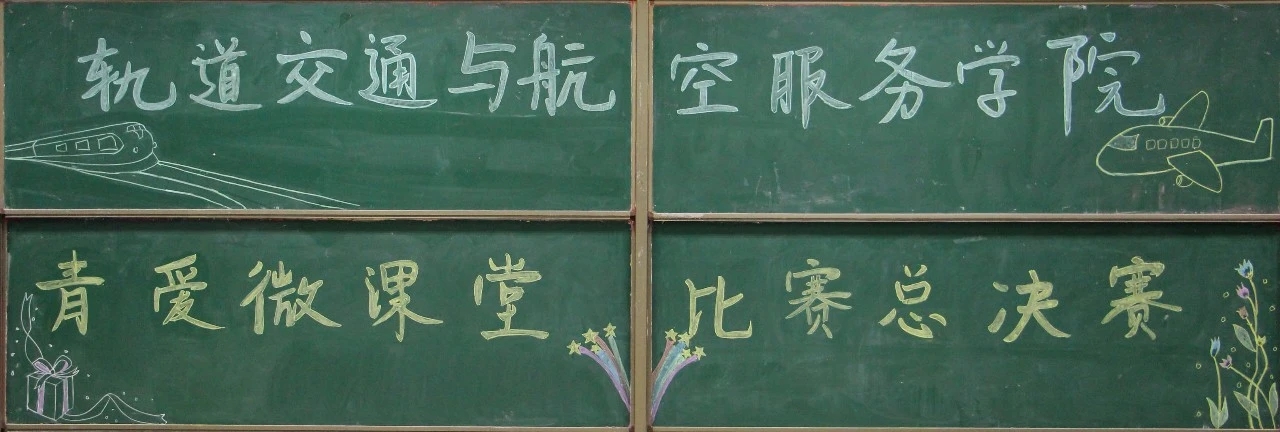 轨道交通与航空服务学院
青爱微课堂比赛总决赛